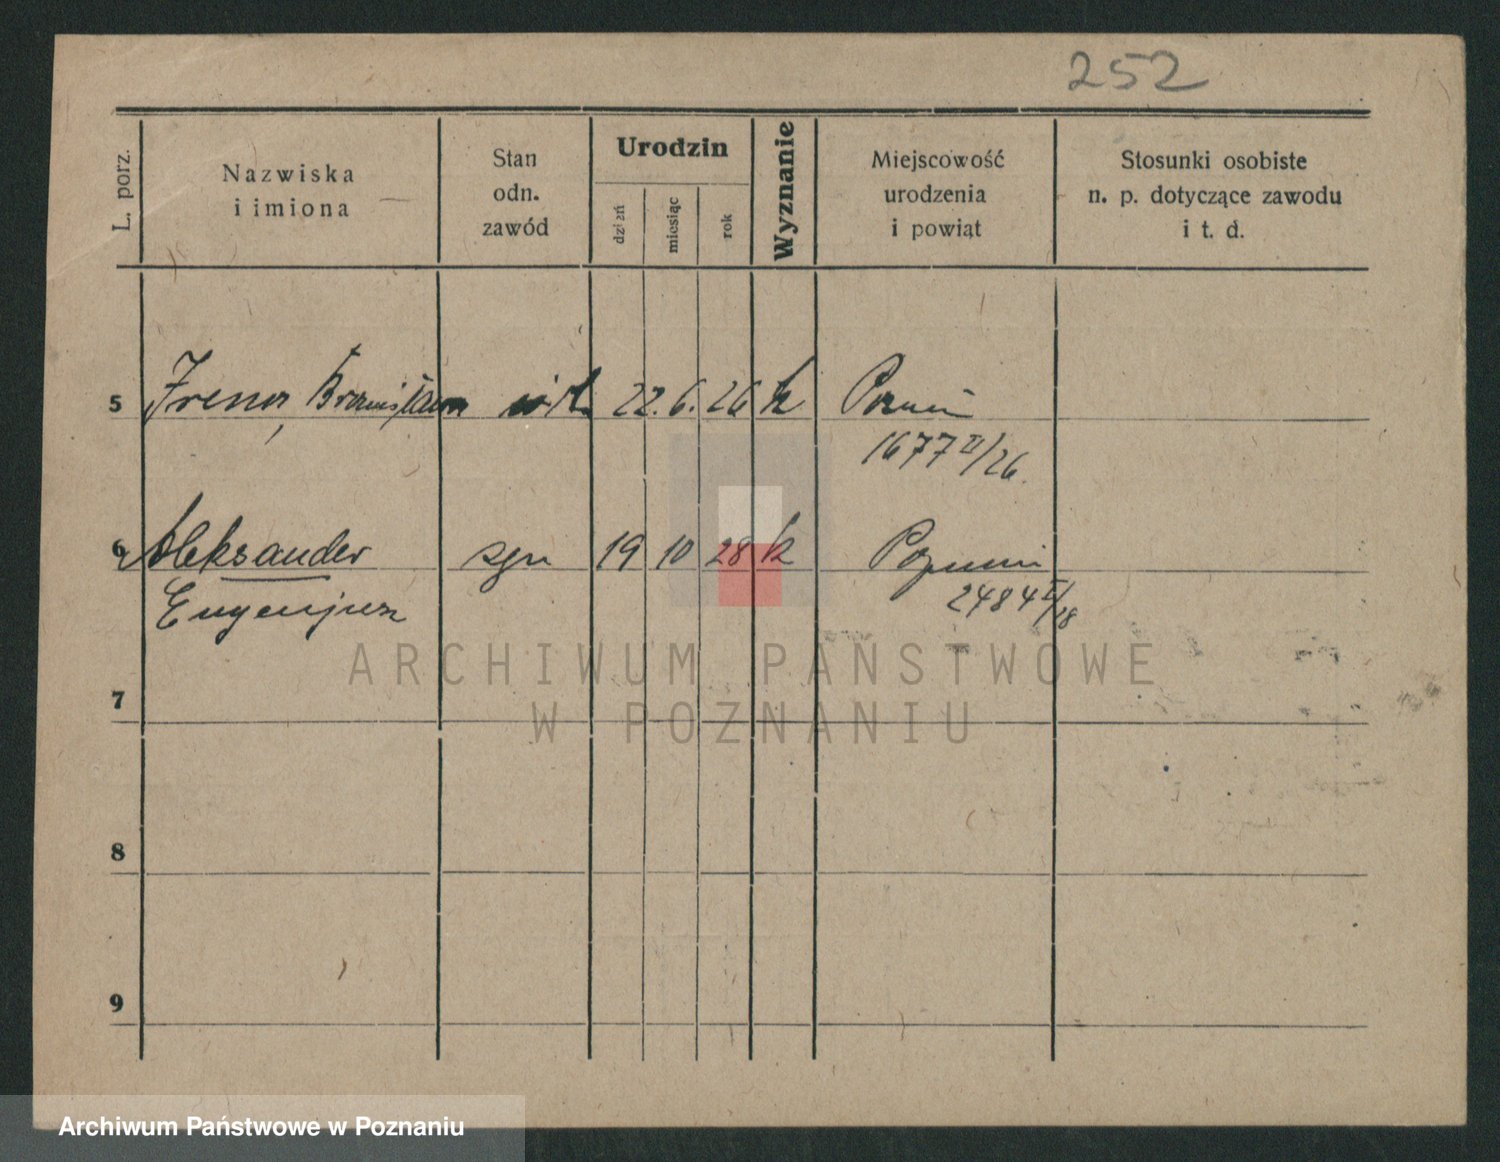 252
L. porz.
Nazwiska
i imiona
Stan
odn.
zawód
Urodzin
dzień
miesiąc
rok
Wyznanie
Miejscowość
urodzenia
i powiąt
Stosunki osobiste
n. p. dotyczące zawodu
i t. d.
5 Irena, Bronisława 22. 6. 26 k Poznań
1677 II/26.
6 Aleksander syn 19 10 28 k Poznań
Eugenjusz 2484 II/28
ARCHIWUM PAŃSTWOWE
W POZNANIU
7
8
9
Archiwum Państwowe w Poznaniu